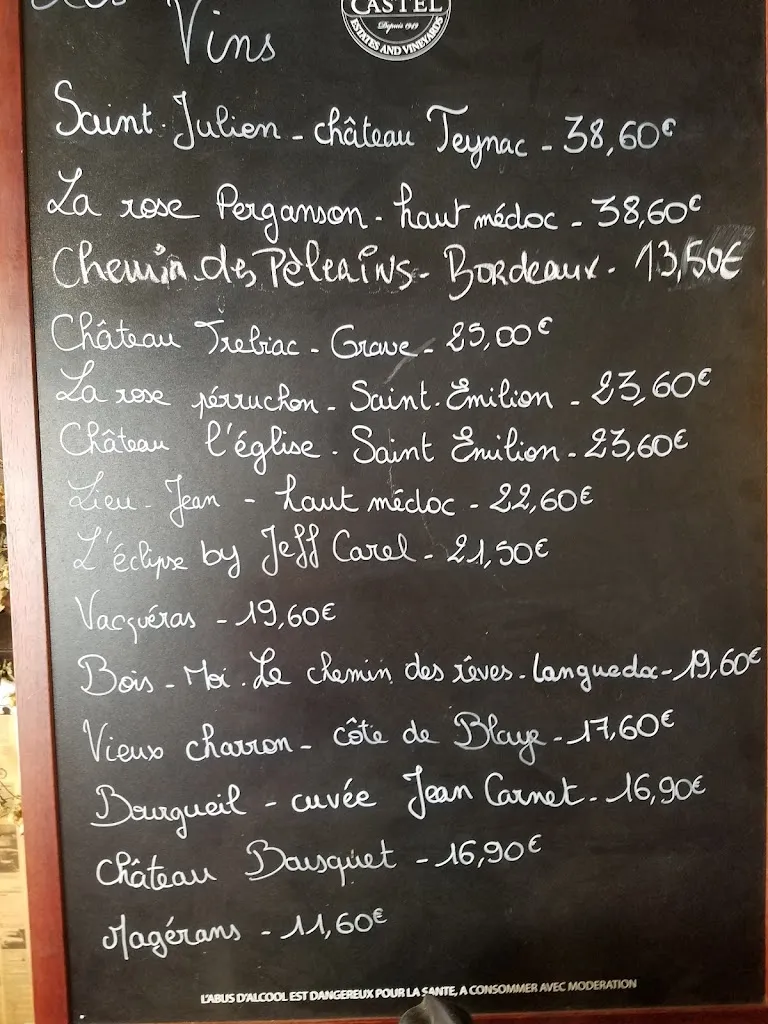 Vins
CASTEL
Depuis 1949
ESTATES AND VINEYARDS
Saint-Julien - château Teynac - 38,60€
La rose Perganson - haut médoc - 38,60€
Chemin des Pèlerins - Bordeaux - 13,50€
Château Trebiac - Grave - 25,00€
La rose pérruchon - Saint-Emilion - 23,60€
Château l'église - Saint Emilion - 23,60€
Lieu-Jean - haut médoc - 22,60€
L'éclipse by Jeff Carel - 21,50€
Vacquéras - 19,60€
Bois-Moi. Le chemin des rêves - languedoc - 19,60€
Vieux charron - côte de Blaye - 17,60€
Bourgueil - cuvée Jean Carnet - 16,90€
Château Bousquet - 16,90€
Magérans - 11,60€
L'ABUS D'ALCOOL EST DANGEREUX POUR LA SANTE, A CONSOMMER AVEC MODERATION